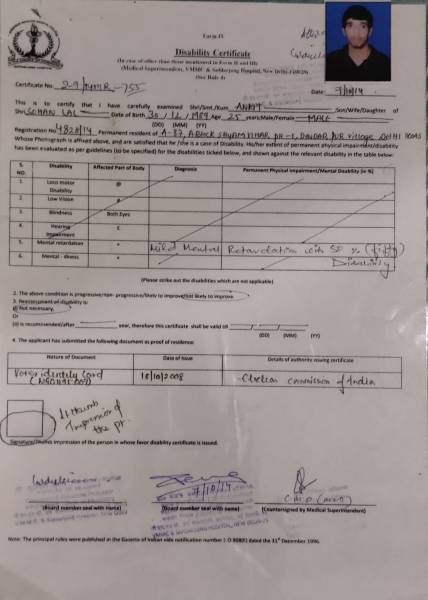 Form-IV
Disability Certificate
(In case of other than those mentioned in Form II and III)
(Medical Superintendent, VMMC & Safdarjung Hospital, New Delhi-110029)
(See Rule 4)
Certificate No. 2-9/
755
Date: 7/10/14
This is to certify that I have carefully examined Shri/Smt/Kum. ANKIT Son/Wife/Daughter of
Shri SOHAN LAL Date of Birth 30/12/1989 Age 25 years Male/Female MALE
(DD) (MM) (YY)
Registration No. 4828/14, Permanent resident of A-37, A Block Shyam Vihar Ph-1, Village Delhi
Whose Photograph is affixed above, and are satisfied that he /she is a case of Disability. His/her extent of permanent physical impairment/disability
has been evaluated as per guidelines (to be specified) for the disabilities ticked below, and shown against the relevant disability in the table below:
S. NO. Disability Affected Part of Body Diagnosis Permanent Physical Impairment/Mental Disability (in %)
1 Loco motor Disability @
2 Low Vision #
3 Blindness Both Eyes
4 Hearing Impairment £
5 Mental retardation * Mild Mental Retardation with 50 % (fifty)
6 Mental - illness * Disability
(Please strike out the disabilities which are not applicable)
2. The above condition is progressive/non- progressive/likely to improve/not likely to improve.
3. Reassessment of disability is:
(i) Not necessary,
Or
(ii) is recommended/after year, therefore this certificate shall be valid till / /
(DD) (MM) (YY)
4. The applicant has submitted the following document as proof of residence:
Nature of Document Date of Issue Details of authority issuing certificate
Voter identity Card 18/10/2008 Election Commission of India
Lt thumb
Impression of
the pt.
Signature/Thumb impression of the person in whose favor disability certificate is issued.
7/10/14
C.M.O
(Board member seal with name) (Board member seal with name) (Countersigned by Medical Superintendent)
Note: The principal rules were published in the Gazette of Indian vide notification number dated the 31st December 1996.